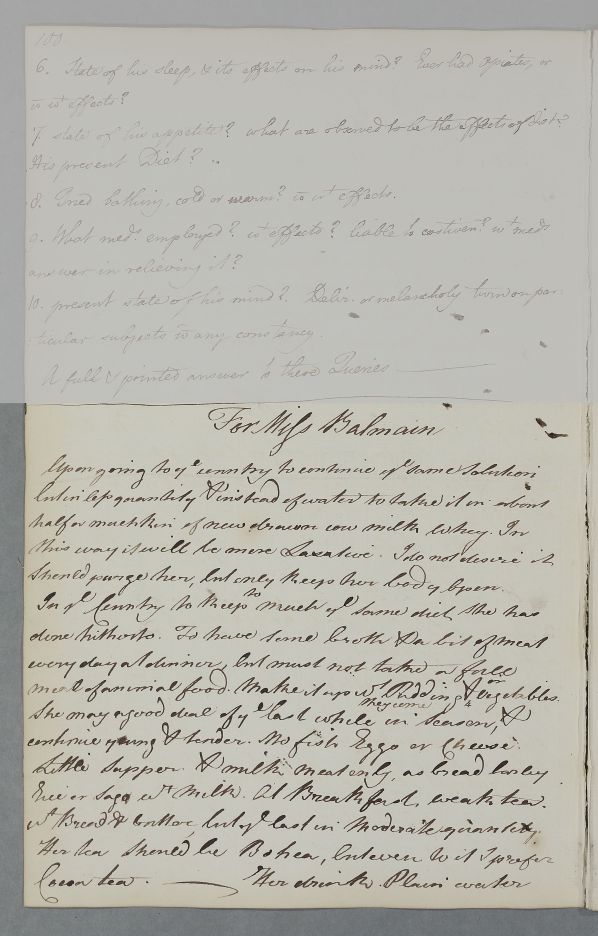 100
6. State of his sleep, & its effects on his mind? Ever had Opiates, or
wt effects?
7. state of his appetite? what are observed to be the effects of Diet?
His present Diet?
8. Tried bathing, cold or warm? wt effects.
9. What meds. employed? wt effects? liable to costiven.? wt meds
answer in relieving it?
10. present state of his mind? Delir. or melancholy turn on par-
ticular subjects any constancy.
A full & pointed answer to these Queries
For Miss Balmain
Upon going to ye country to continue ye same solution
but in less quantity & instead of water to take it in about
half a mutchkin of new drawn cow milk whey. In
this way it will be more Laxative. I do not desire it
should purge her, but only keeps her body open.
In ye Country to keep to much ye same diet she has
done hitherto. To have some broth & a bit of meat
every day at dinner, but must not take a full
meal of animal food. Make it up wt Pudding or & Vegetables.
She may a good deal of ye last while they come in season, &
continue young & tender. No fish Eggs or Cheese.
Little supper. & milk meat only, as bread barley
Rice or Sago wt Milk. At Breakfast, weak tea.
wt Bread & butter, but ye last in moderate quantity.
Her tea should be Bohea, but even to it I prefer
Cocoa tea. Her drink. Plain water